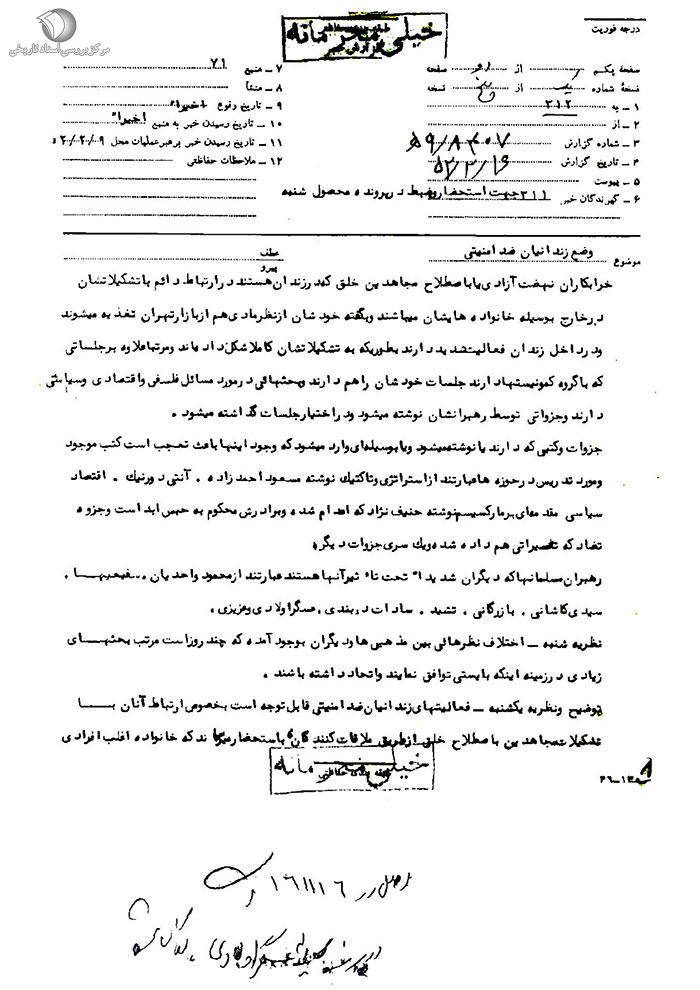 مرکز بررسی اسناد تاریخی
خیلی محرمانه
گزارش خبر
درجه فوریت
صفحه یکم از دو صفحه
نسخهٔ شماره یک از پنج نسخه
۱ – به ۳۱۲
۲ – از
۳ – شماره گزارش
۴ – تاریخ گزارش
۵ – پیوست
۶ – گیرندگان خبر ۳۱۱ جهت استحضار و ضبط در پرونده محصول شنبه
۷ – منبع ۷۱
۸ – منشأ
۹ – تاریخ وقوع اخیرا"
۱۰ – تاریخ رسیدن خبر به منبع اخیرا"
۱۱ – تاریخ رسیدن خبر برهبر عملیات محل
۱۲ – ملاحظات حفاظتی
موضوع وضع زندانیان ضد امنیتی
عطف
پیرو
خرابکاران نهضت آزادی یا باصطلاح مجاهدین خلق که در زندان هستند در ارتباط دائم با تشکیلاتشان
در خارج بوسیله خانواده هایشان میباشند و بگفته خودشان از نظر مادی هم از بازار تهران تغذیه میشوند
و در داخل زندان فعالیت شدید دارند بطوریکه به تشکیلاتشان کاملا شکل داده اند و مرتبا علاوه بر جلساتی
که با گروه کمونیستها دارند جلسات خودشان را هم دارند و بحثهائی در مورد مسائل فلسفی و اقتصادی و سیاسی
دارند و جزواتی توسط رهبرانشان نوشته میشود و در اختیار جلسات گذاشته میشود .
جزوات و کتبی که دارند یا نوشته میشود و یا بوسیله ای وارد میشود که وجود اینها باعث تعجب است کتب موجود
و مورد تدریس در حوزه ها عبارتند از استراتژی و تاکتیک نوشته مسعود احمد زاده . آنتی دورینک . اقتصاد
سیاسی مقدمه ای بر مارکسیسم نوشته حنیف نژاد که اعدام شده و برادرش محکوم به حبس ابد است و جزوه
تضاد که تغییراتی هم داده شده و یک سری جزوات دیگر
رهبران مسلمانها که دیگران شدیدا" تحت تاثیر آنها هستند عبارتند از محمود احدیان .
سیدی کاشانی . بازرگانی . تشید . سادات دربندی . عسگراولادی و عزیزی .
نظریه شنبه – اختلاف نظرهائی بین مذهبی ها و دیگران بوجود آمده که چند روز است مرتب بحثهای
زیادی در زمینه اینکه بایستی توافق نمایند و اتحاد داشته باشند .
توضیح و نظریه یکشنبه – فعالیتهای زندانیان ضد امنیتی قابل توجه است بخصوص ارتباط آنان با
تشکیلات مجاهدین باصطلاح خلق از طریق ملاقات کنندگان با استحضار میرساند که خانواده اغلب افرادی
خیلی محرمانه
طبقه بندی حفاظتی
اصل در ۱۶۱۱۱۶